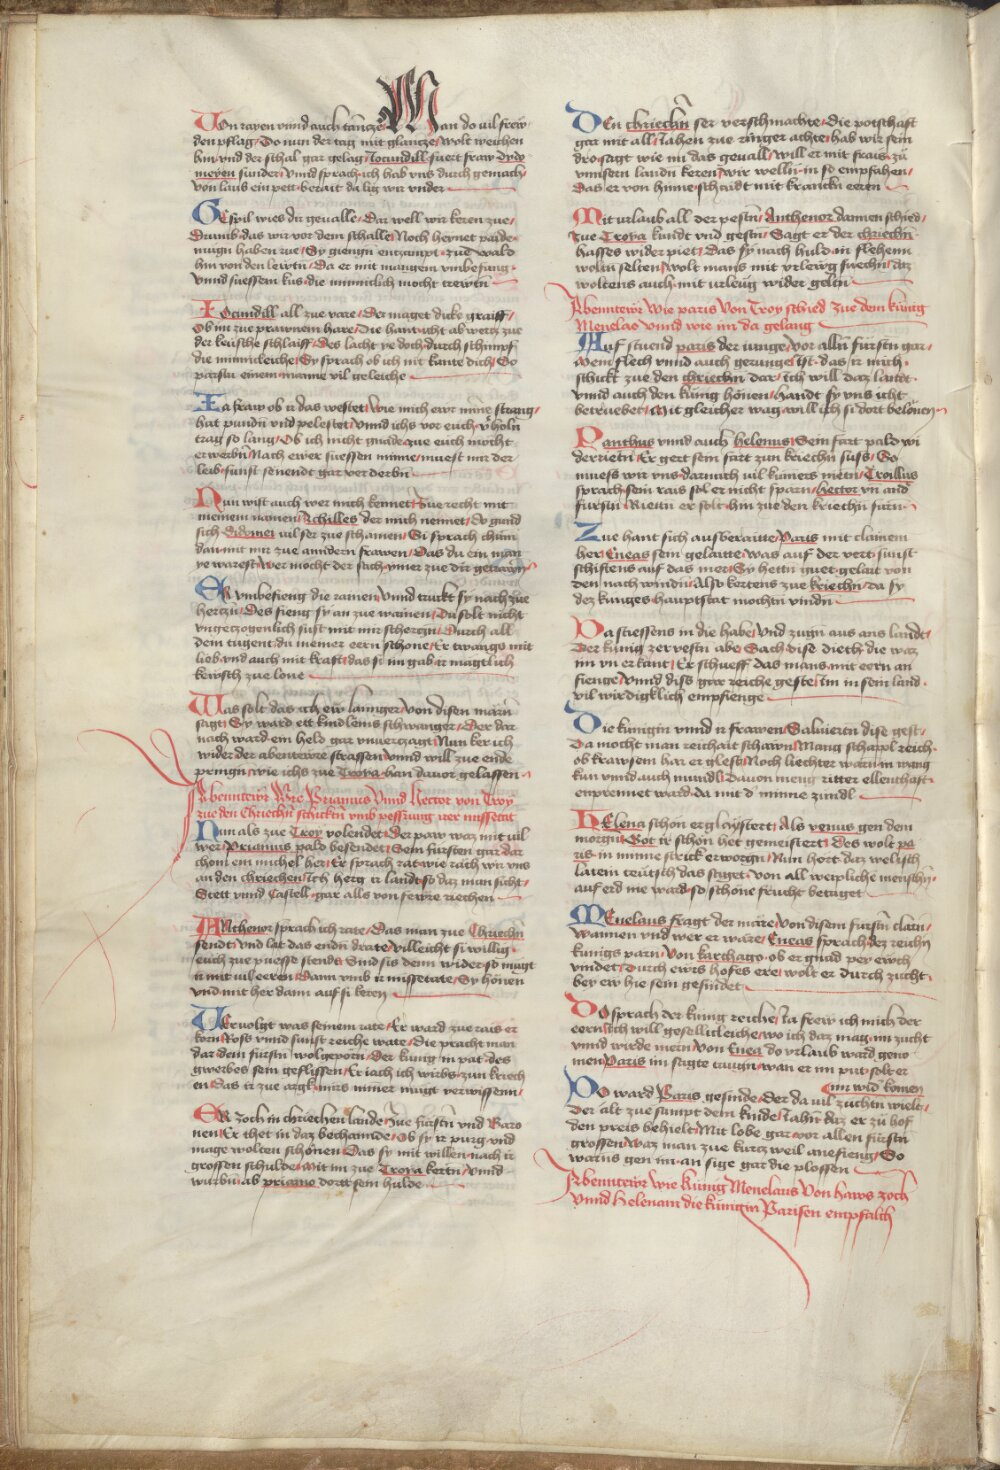 Von rayen vnnd auch tanntze Man do vil frew
den pflag/ Do nun der tag mit glantze/ wolt weichen
hin vnd der schal gar gelag/ Jocundill fuert fraw dydo
meyen sunder/ Vnnd sprach ich hab vns durch gemach/
von laus ein pett berait da lig wir vnder
Gespil wies dir geualle/ Dar well wir keren zue/
Drumb das wir vor dem schalle/ Noch heynet paide
mugn haben rue/ Sy giengn entzampt zue wald
hin von den lewtn/ Da er mit mangem vmbefang
vnnd suessem kus die minnclich mocht trewtn
Jocundill all zue vare/ Der maget dickh graiff/
Ob im zue prawnem hare/ Die hant icht abwertz zue
der keusche schlaiff/ Des lacht ye doch durch schimpf
die minncleiche/ Sy sprach ob ich nit kante dich/ So
parstu einem manne vil geleiche
Ja fraw ob ir das westet/ wie mich ewr minne strang/
hat pundn vnd pelestet/ Vnnd ichs vor euch v̈holn
trag so lang/ Ob ich nicht gnade zue euch mocht
erwerbn/ Nach ewer suessen minne/ muest mir der
leib sunst senendt gar verderbn
Nun wist auch wer mich kennet/ Zue recht mit
meinem namen/ Achilles der mich nennet/ Do gund
sich Didomei vil ser zue schamen/ Si sprach chum
dan mit mir zue anndern frawen/ Das du ein man
ye warest/ wer mocht der sach ymer zue dir getrawn
Er vmbefieng die rainen/ Vnnd truckt sy nach zue
hertzn/ Des fieng sy an zue wainen/ Du solt nicht
vngetzogenlich sust mit mir schertzn/ Durch all
dein tugent/ du meiner eern schone/ Er twangs mit
lieb vnd auch mit kraft/ das si im gab ir magtlich
kewsch zue lone
Was solt das ich ew lannger/ Von disen marn
sagt/ Sy ward ett kindleins schwanger/ Der dar
nach ward ein held gar vnuertzagt/ Nun ker ich
wider der abentewre strassen/ Vnnd will zue ende
pringn/ wie ichs zue Troya han dauor gelassen
Abenntewr Wie Priamus Vnnd Hector von Troy
zue den Chriechn schickten vmb pessrung irer missetat
Nun als zue Troy volendet/ Der paw waz mit vil
wer/ Priamus pald besendet/ Sein fursten gar dar
chom ein michel her/ Er sprach rat wie rach wir vns
an den chriechen/ Ich herg ir landt/ so daz man sicht/
Stett vnnd Castell gar alls von fewre riechen
Anthenor sprach ich rate/ Das man zue Chriechn
sendt/ Vnd lat das endn drate/ villeicht si willig
euch zue puesse stendt/ Sind sis denn wider/ so mugt
ir mit vil eeren/ Dann vmb ir missetate/ Sy hönen
vnd mit her dann auf si keren
Veruolgt was seinem rate/ Er ward zue rais er
korn/ Ross vnnd sunst reiche wate/ Die pracht man
dar dem furstn wolgeporn/ Der kunig in pat des
gwerbes sein geflissen/ Er iach ich wirbs zun kriech
en/ Das ir zue argk mirs nimer mugt verwissenn
Er zoch in chriechen lande/ Zue furstn vnd Baro
nen/ Er thet in daz bechannde/ Ob sy ir purg vnd
mage wolten schonen/ Das sy mit willen nach ir
grossen schulde/ Mit im zue Troya kertn/ Vnnd
wurbn ab priamo dortt sein hulde
Den chriechn ser verschmachte/ Die potschaft
gar mit all/ Jahen zue ringer achte/ hab wir sein
dro/ sagt wie im das geuall/ will er mit frais zu
vnnsern landn keren/ wir welln in so empfahen/
Das er von hinne schaidt mit krancken eeren
Mit urlaub all der pestn/ Anthenor dannen schied/
zue Troya kundt vnd gestn/ Sagt er der chriechn
hasses wider piet/ Das sy nach huld in flehenn
wolln selten/ wolt mans mit vrlewg suechn/ daz
woltens auch mit urleug wider geltn
Abenntewr Wie paris Von Troy schied zue dem kunig
Menelao vnnd wie im da gelang
Auf stuend paris der iunge/ vor alln furstn gar/
Mein flech vnnd auch gerunge/ Ist das ir mich
schickt zue den chriechn dar/ Ich will daz lantt
vnnd auch den kunig hönen/ Handt sy vns icht
betruebet/ Mit gleicher wag will ich si dort belonen
Panthus vnnd auch helenus/ Sein fart pald wi
derrietn/ Er gert sein fart zun kriechn suss/ So
muess wir vns darnach vil kumers nietn/ Troillus
sprach sein rais sol er nicht sparn/ hector vn and
furstn/ Rietn er solt hin zue den kriechn farn
Zue hant sich ausberaitte/ Paris mit clainem
her/ Eneas sein gelaitte/ was auf der vert/ sunst
schifftens auf das mer/ Sy hettn guet gelait von
den nach windn/ Also kortens zue kriechn/ da sy
dez kunges hauptstat mochtn vindn
Da stiessens in die habe/ Vnd zugn aus ans landt/
Der kunig zer vestn abe/ Sach dise dieth/ die waz
im vn erkant/ Er schueff das mans mit eern an
fienge/ Vnnd diss gar reiche geste/ Im in sein land
vil wirdigklich empfienge
Die kunigin vnnd ir frawen/ Saluierten dise gest/
Da mocht man reichait schawn/ Mang schappl reich
ob krawsem har er glest/ Noch liechter warn in wang
kun vnnd auch mundl/ Dauon meng ritter ellenthaft
enprennet ward da mit d' minne zundl
Helena schon erglaystert/ Als venus gen dem
morgn/ Got ir schön het gemeistert/ Des wolt pa
ris in minne strick erworgn/ Nun hort daz welisch
latein teutsch das saget/ von all weipliche menschn
auf erd nie ward so schöne frucht betaget
Menelaus fragt der märe/ Von disem furstn clarn/
Wannen vnd wer er ware/ Eneas sprach/ dez reichn
kunigs parn/ Von karchago/ ob er gnad pey ewch
vindet/ Durch ewrs hofes ere/ wolt er durch zucht
bey ew hie sein gesindet
Do sprach der kunig reiche/ Ja frew ich mich der
eern/ Ich will gesellicleiche/ wo ich daz mag im zucht
vnnd wirde mern/ Von Enea do vrlaub ward geno
men/ Paris im sagte traugn/ wan er im put solt er
im wid' komen
Do ward Paris gesinde/ der da vil zuchtn wielt/
Der alt zue sampt dem kinde/ Jahn daz er zu hof
den preis behielt/ Mit lobe gar vor allen furstn
grossen/ Waz man zue kurtz weil anefieng/ So
warns gen im an sige gar die plossen
Abenntewr wie kunig Menelaus Von haws zoch
Vnnd Helenam die kunigin Parisen empfalch